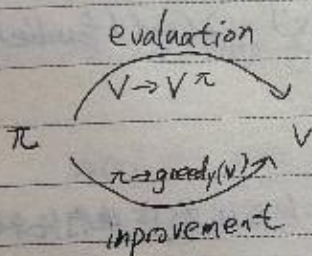 evaluation
V→V^π
π V
π→greedy(v)
inprovement